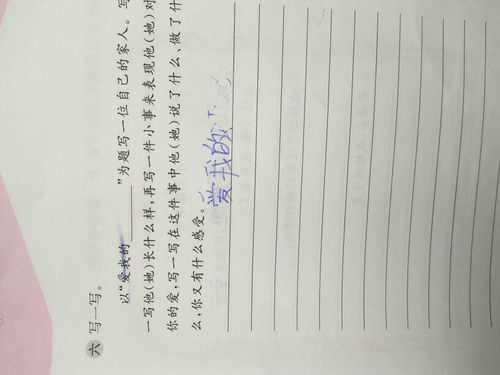 六 写一写。
以“爱我的______”为题写一位自己的家人。写
一写他(她)长什么样,再写一件小事来表现他(她)对
你的爱,写一写在这件事中他(她)说了什么、做了什
么,你又有什么感受。
爱我的